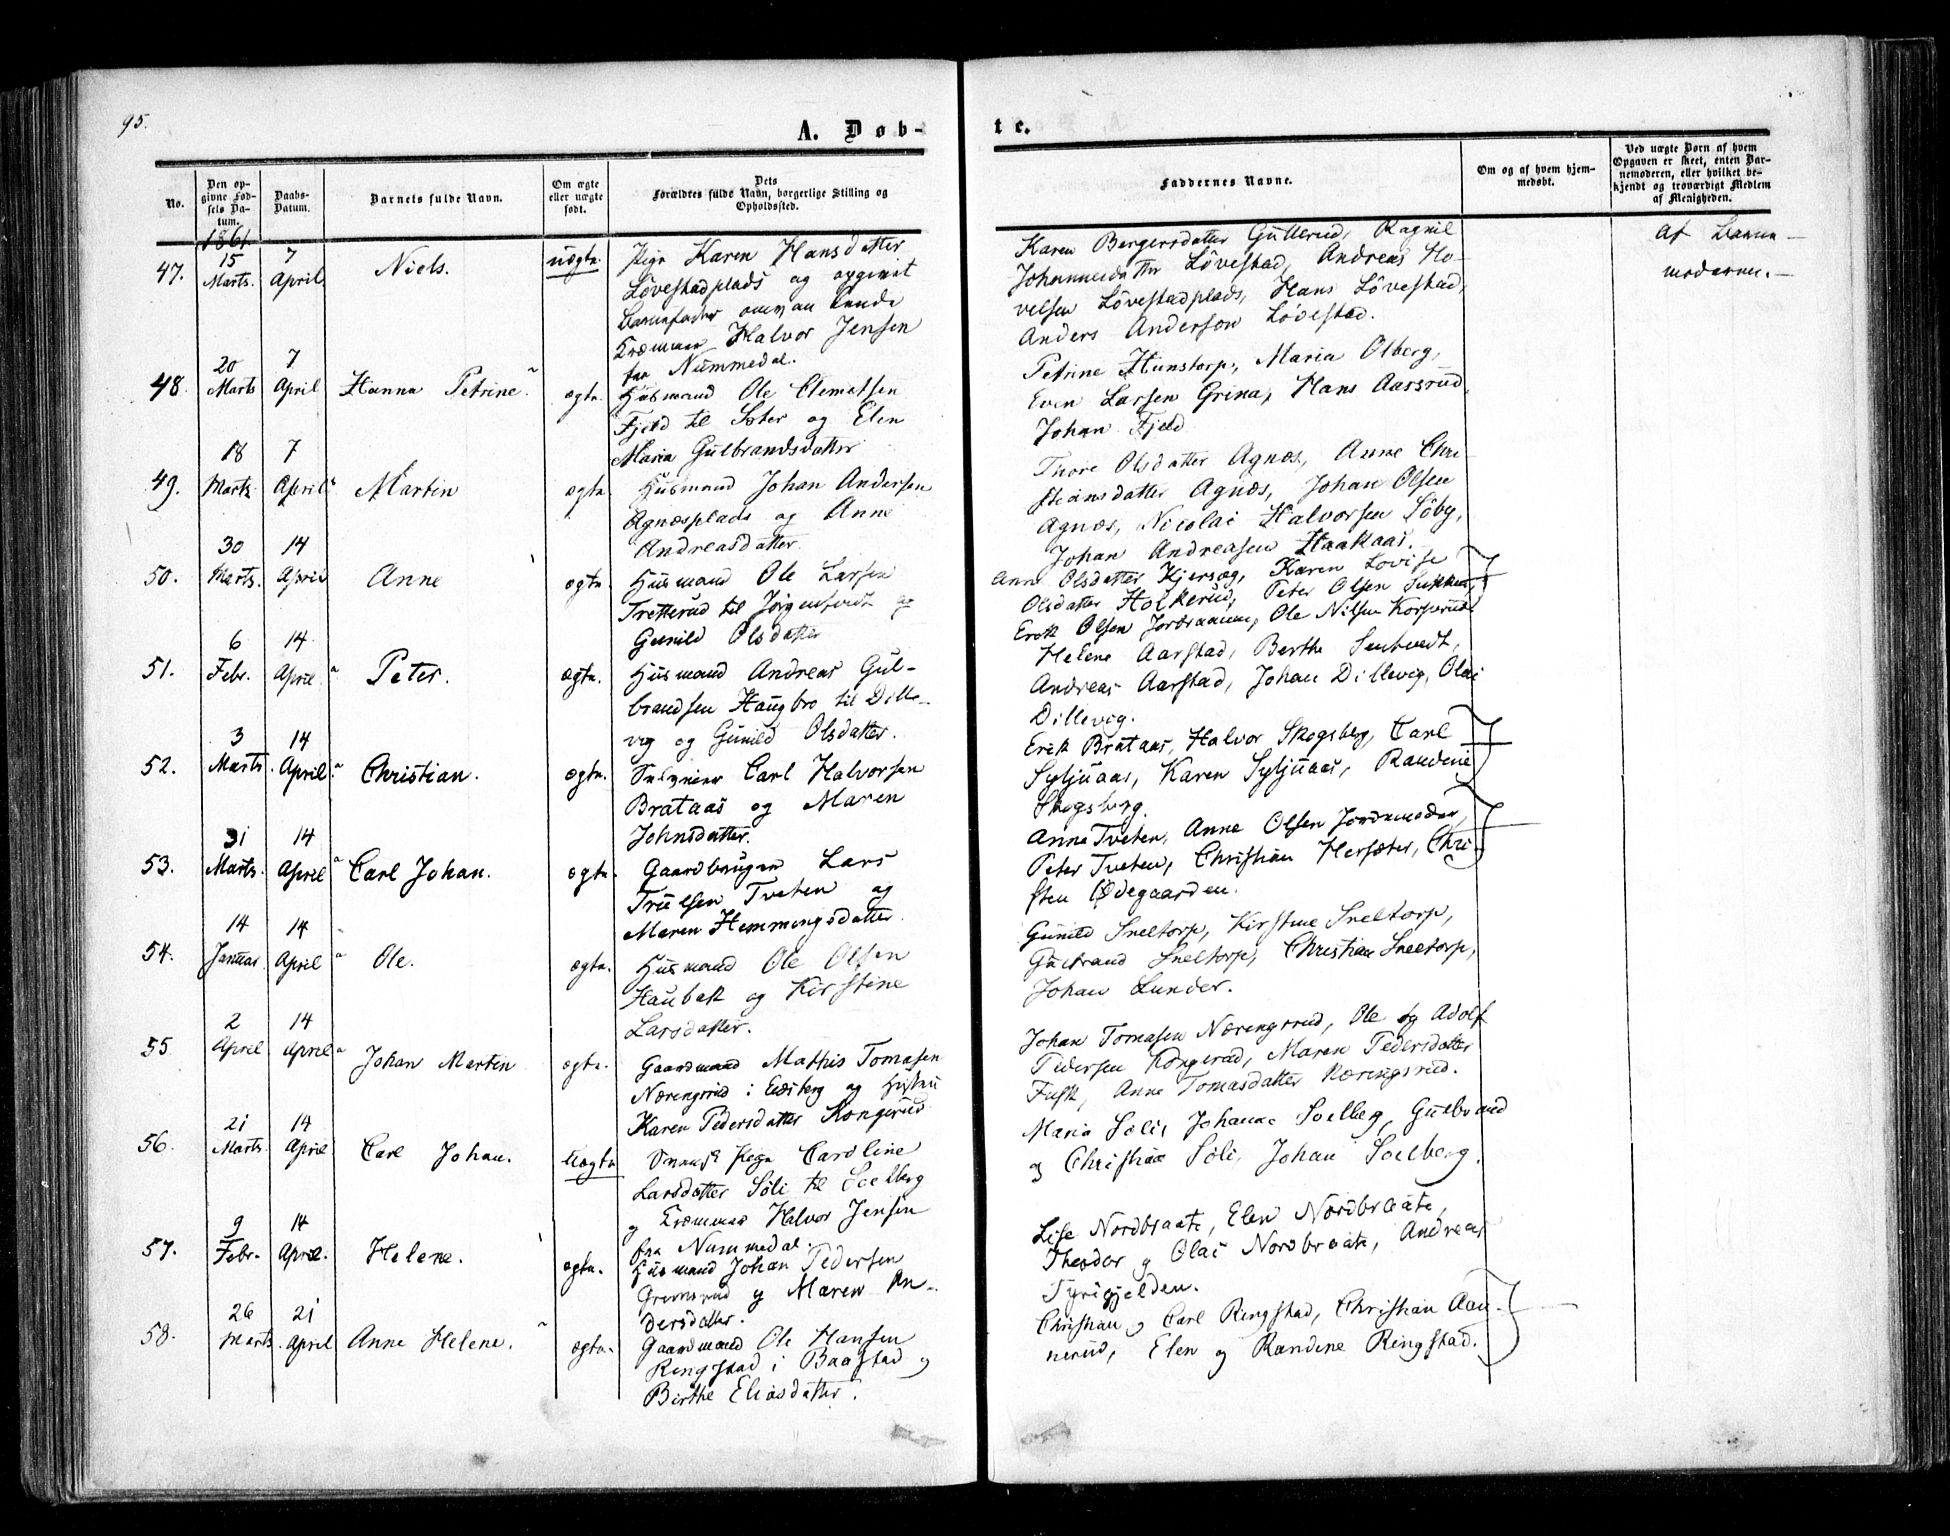 95.
A. Døb-
te.
No.
Den opgivne Fødsels Datum.
Daabs-Datum.
Barnets fulde Navn.
Om ægte eller uægte født.
Dets Forældres fulde Navn, borgerlige Stilling og Opholdssted.
Faddernes Navne.
Om og af hvem hjemmedøbt.
Ved uægte Børn af hvem Opgaven er skeet, enten Barnemoderen, eller hvilket bekjendt og troværdigt Medlem af Menigheden.
1861.
47. 15 Marts. 7 April Niels. uægte.
Pige Karen Hansdatter
Løvestadplads og opgivet
Barnefader omvankende
Kræmmer Halvor Jensen
fra Nummedal.
Karen Bergersdatter Gullerud, Ragnil
Johannesdatter Løvestad, Andreas Ho-
velsen Løvestadplads, Hans Løvestad,
Anders Anderson Løvestad.
Af Barne-
moderen.-
48. 20 Marts 7 April Hanna Petrine. ægte.
Husmand Ole Clemetsen
Fjeld til Sæter og Elen
Maria Gulbrandsdatter
Petrine Hunstorp, Maria Olberg,
Even Larsen Grina, Hans Aarsrud,
Johan Fjeld
49. 18 Marts 7 April Martin ægte
Husmand Johan Andersen
Agnæsplads og Anne
Andreasdatter.
Thore Olsdatter Agnæs, Anne Chri-
stiansdatter Agnæs, Johan Olsen
Agnæs, Nicolai Halvorsen Søby,
Johan Andreasen Haakaas.
50. 30 Marts. 14 April Anne ægte.
Husmand Ole Larsen
Tretterud til Jørgentvedt og
Gunild Olsdatter
Anne Olsdatter Kjersøg, Karen Lovise
Olsdatter Holkerud, Peter Olsen
Erik Olsen Ole Nilsen Korperud
51. 6 Febr. 14 April. Peter. ægte.
Husmand Andreas Gul-
brandsen Haugbro til Dille-
vig og Gunild Olsdatter.
Helene Aarstad, Berthe Sentvedt,
Andreas Aarstad, Johan Dillevig, Olai
Dillevig.
52. 3 Marts. 14 April. Christian. ægte.
Carl Halvorsen
Brataas og Maren
Johnsdatter.
Erik Brataas, Halvor Skogsberg, Carl
Syljuaas, Karen Syljuaas, Randine
Skogsberg.
53. 31 Marts. 14 April Carl Johan. ægte.
Gaardbruger Lars
Truelsen Tveten og
Maren Hemmingsdatter.
Anne Tveten, Anne Olsen Jordemoder,
Peter Tveten, Christian Hersæter, Chri-
sten Ødegaarden.
54. 14 Januar. 14 April Ole. ægte.
Husmand Ole Olsen
Haubak og Kirstine
Larsdatter.
Gunild Sneltorp, Kirstine Sneltorp,
Gulbrand Sneltorp, Christian Sneltorp,
Johan Lunder.
55 2 April. 14 April Johan Martin ægte.
Gaardmand Mathis Tomasen
Næringsrud i Eidsberg og Hustru
Karen Pedersdatter Kongerud
Johan Tomasen Næringsrud, Ole og Adolf
Pedersen Kongerud, Maren Pedersdatter
Fusk, Anne Tomasdatter Næringsrud.
56. 21 Marts 14 April Carl Johan. Uægte
Pige Caroline
Larsdatter Søli til Soelberg
og Kræmmer Halvor Jensen
fra Nummedal.
Maria Søli, Johanne Soelberg, Gulbrand
og Christian Søli, Johan Soelberg.
57. 9 Febr. 14 April. Helene. ægte.
Husmand Johan Pedersen
Grimsrud og Maren An-
dersdatter.
Lise Nordbraate, Elen Nordbraate,
Theodor og Olai Nordbraate, Andreas
Tyrigjelden.
58. 26 Marts. 21 April Anne Helene. ægte.
Gaardmand Ole Hansen
Ringstad i Baastad og
Birthe Eliasdatter.
Christian og Carl Ringstad, Christian Aan-
nerud, Elen og Randine Ringstad.